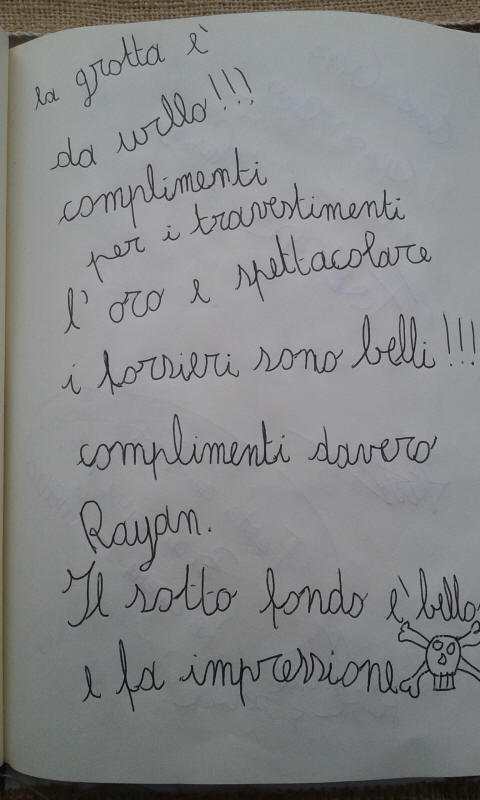 la grotta è
da urllo!!!
complimenti
per i travestimenti
l' oro e spettacolare
i forsieri sono belli!!!
complimenti davero
Rayan.
Il sotto fondo è bello
e fa impressione